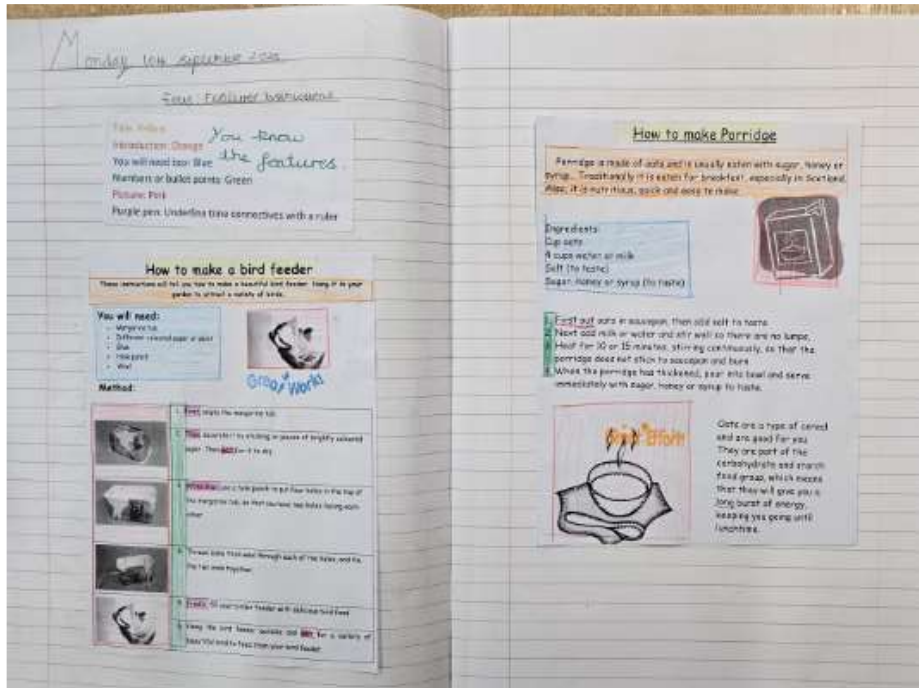 Monday
Introduction: Orange You know
You will need box: Blue the features.
Numbers or bullet points: Green
Picture: Pink
Purple pen: Underline time connectives with a ruler
How to make a bird feeder
These instructions will tell you how to make a beautiful bird feeder. Hang it in your
garden to attract a variety of birds.
You will need:
• Margarine tub
• Different coloured paper or paint
• Glue
• Hole punch
• Wool
Great Work!
Method:
1. First, empty the margarine tub.
2. Then decorate it by sticking on pieces of brightly coloured
paper. Then wait for it to dry.
use a hole punch to put four holes in the top of
the margarine tub, so that you have two holes facing each
other.
Thread some wool through each of the holes, and tie
the two ends together.
fill your birder feeder with delicious bird food.
Hang the bird feeder outside and wait for a variety of
beautiful bird to feed from your bird feeder.
How to make Porridge
Porridge is made of oats and is usually eaten with sugar, honey or
syrup. Traditionally it is eaten for breakfast, especially in Scotland.
Also, it is nutritious, quick and easy to make.
Ingredients:
Cup oats
4 cups water or milk
Salt (to taste)
Sugar, honey or syrup (to taste)
1. First put oats in saucepan, then add salt to taste.
2. Next add milk or water and stir well so there are no lumps.
3. Heat for 10 or 15 minutes, stirring continuously, so that the
porridge does not stick to saucepan and burn.
4. When the porridge has thickened, pour into bowl and serve
immediately with sugar, honey or syrup to taste.
Great Effort!
Oats are a type of cereal
and are good for you.
They are part of the
carbohydrate and starch
food group, which means
that they will give you a
long burst of energy,
keeping you going until
lunchtime.